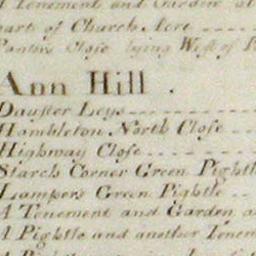 A Tenement and Garden at
part of Church Acre
Panters Close lying West of
Ann Hill .
Dauster Leys
Hambleton North Close
Highway Close
Starch Corner Green Pightle
Lampers Green Pightle
A Tenement and Garden a
A Pightle and another Tenem